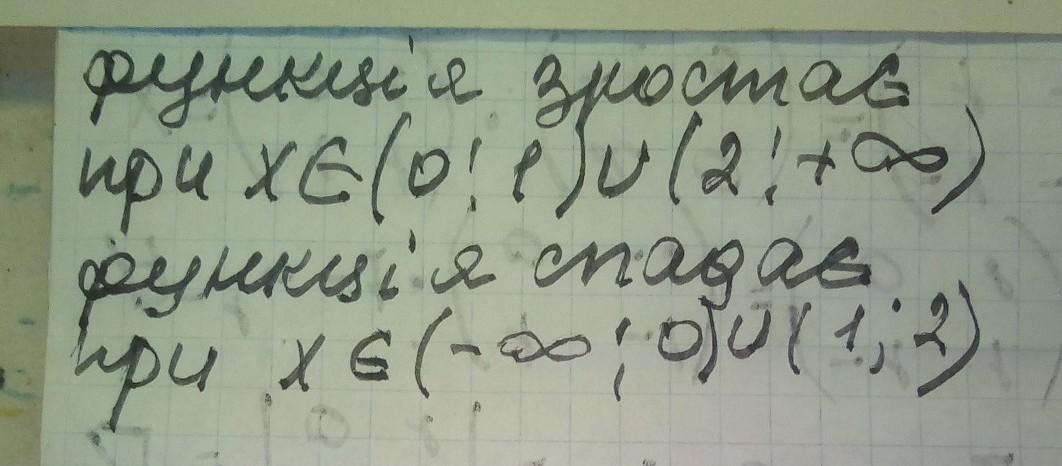 функція зростає
при x∈(0; 1)∪(2; +∞)
функція спадає
при x∈(-∞; 0)∪(1; 2)